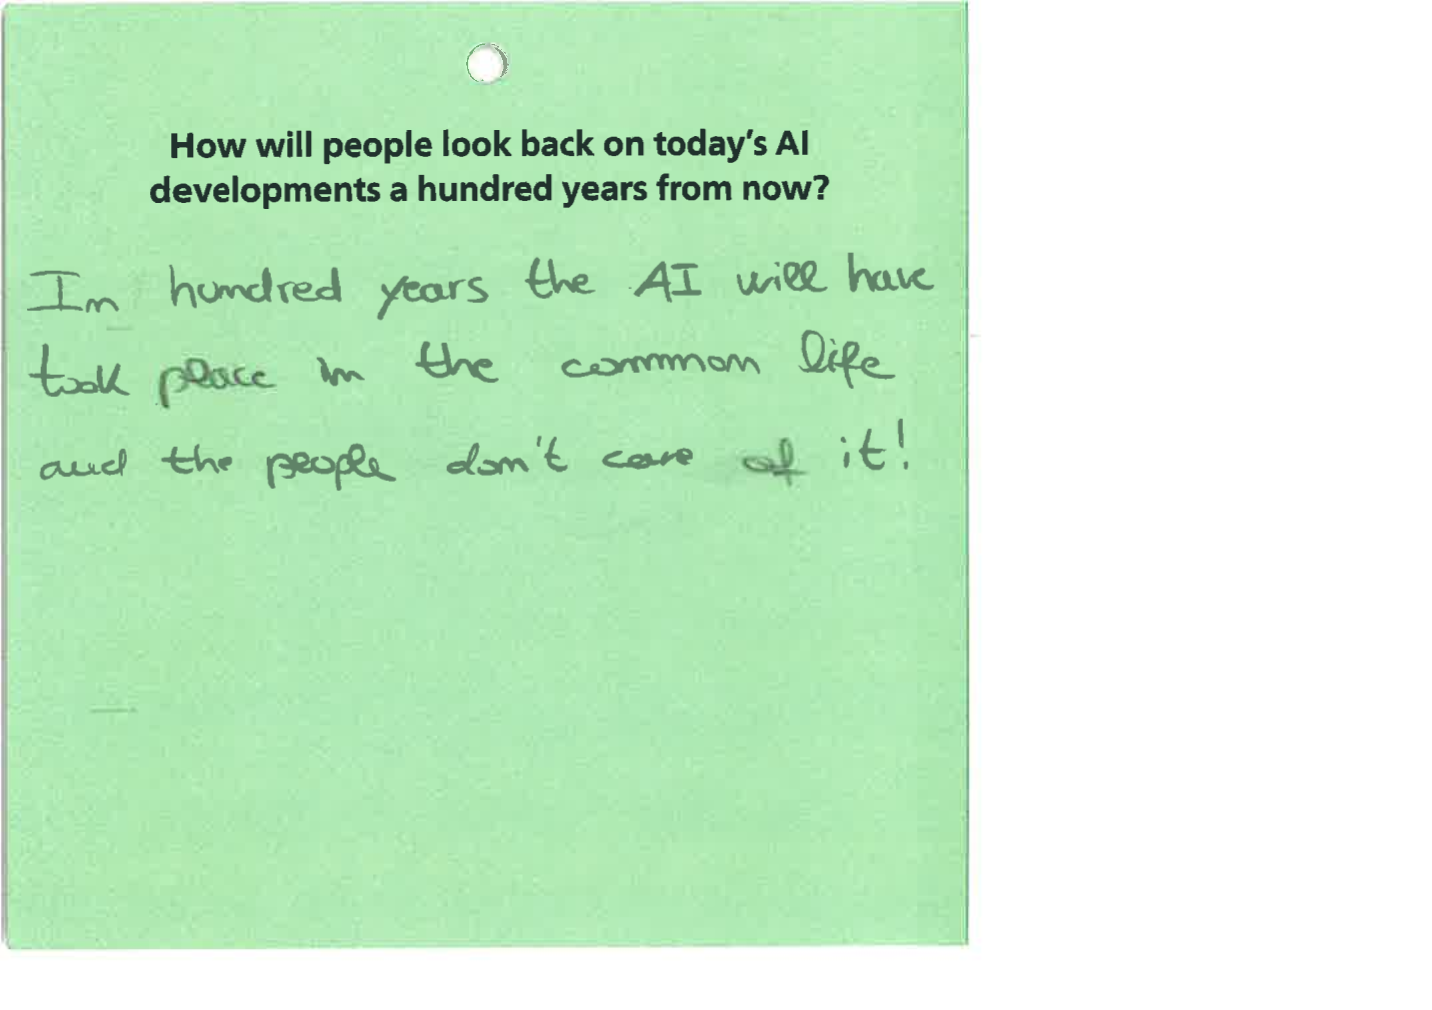 How will people look back on today's AI
developments a hundred years from now?
In hundred years the AI will have
took place in the common life
and the people don't care of it!